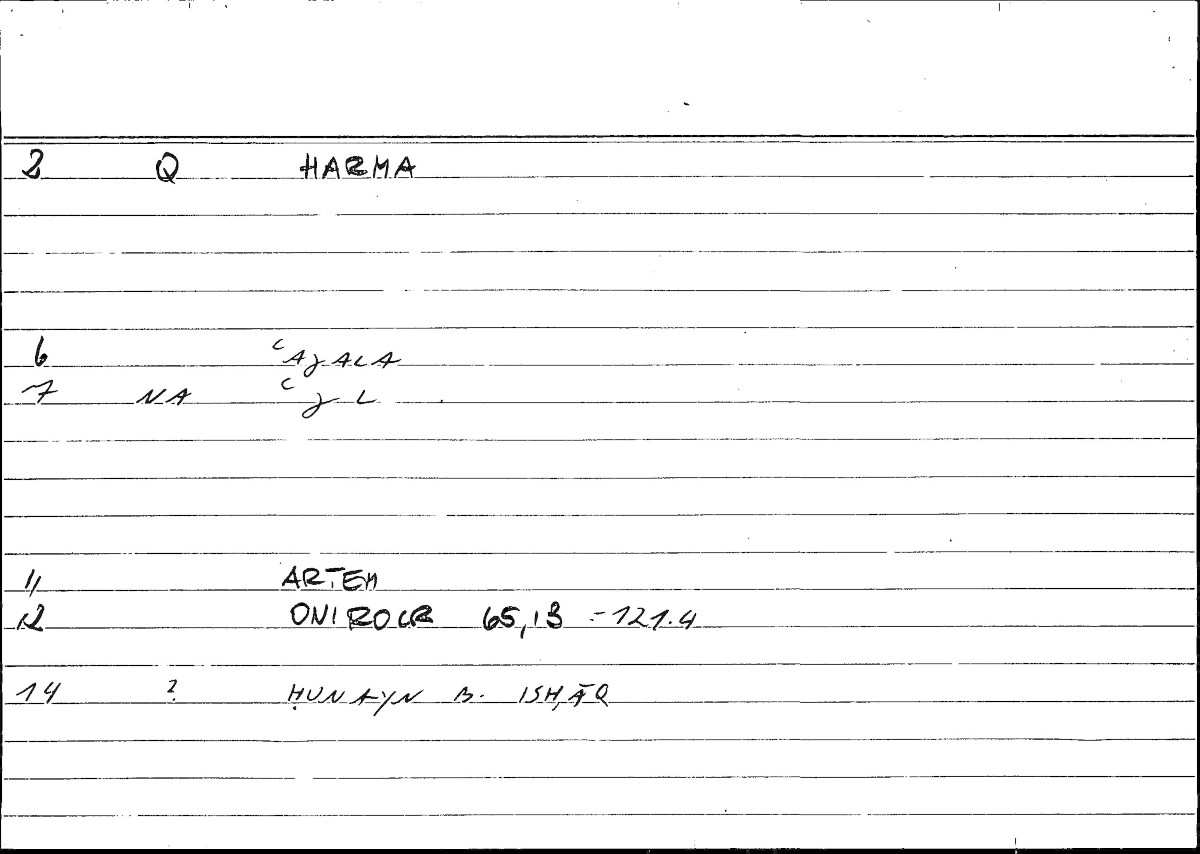 2 Q HARMA
6 ʿAJALA
7 NA ʿJL
11 ARTEM
12 ONIROCR 65,13 = 121.4
14 ? ḤUNAYN B. ISḤĀQ